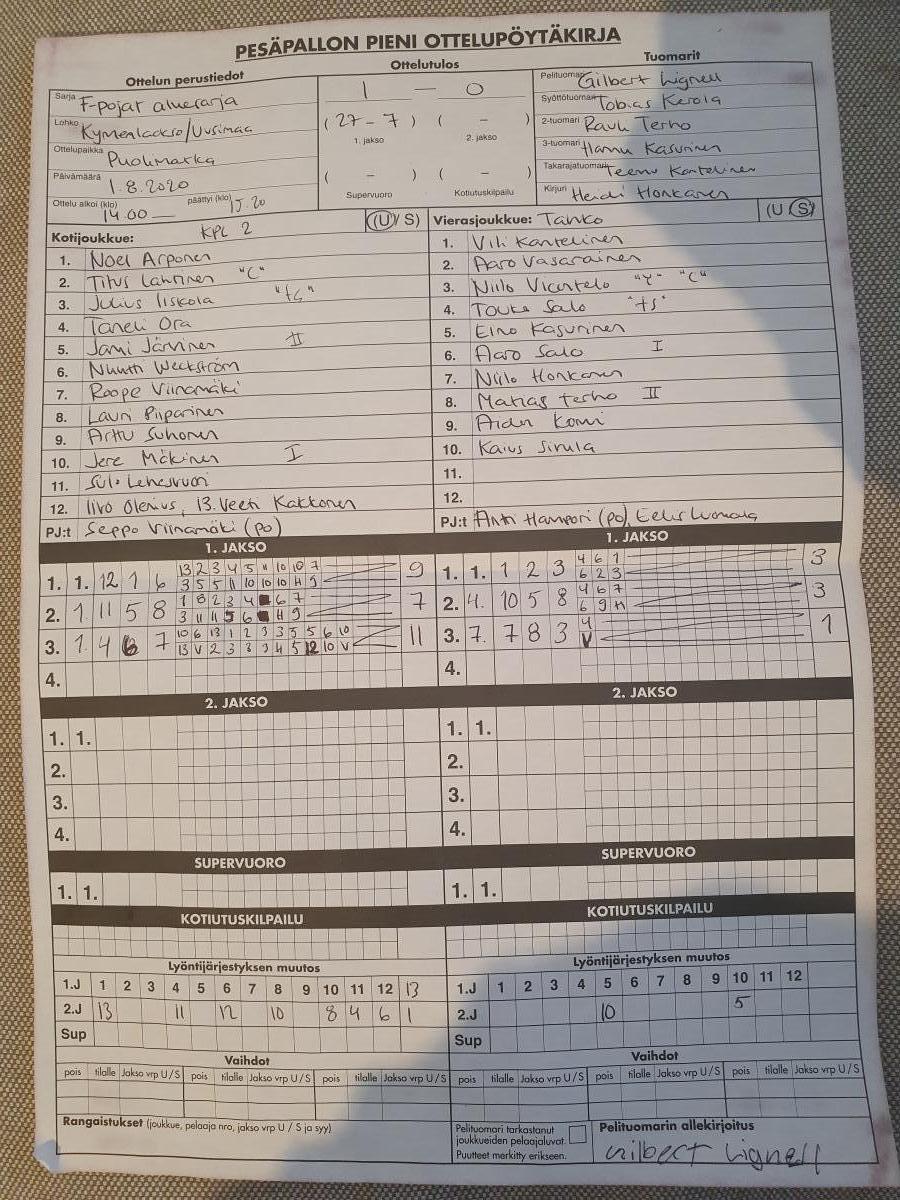 PESÄPALLON PIENI OTTELUPÖYTÄKIRJA
Ottelun perustiedot
Ottelutulos
Tuomarit
Sarja F-pojat aluesarja
Lohko Kymenlaakso/Uusimaa
Ottelupaikka Puolimatka
Päivämäärä 1.8.2020
Ottelu alkoi (klo) 14.00 päättyi (klo) 15.20
1 - 0
(27 - 7) ( - )
1. jakso 2. jakso
( - ) ( - )
Supervuoro Kotiutuskilpailu
Pelituomari Gilbert Lignell
Syöttötuomari Tobias Kerola
2-tuomari Rauli Terho
3-tuomari Hannu Kasurinen
Takarajatuomari Teemu Kantelinen
Kirjuri Heidi Honkanen
Kotijoukkue: KPL 2 (U/ S)
1. Noel Arponen
2. Titus Lahtinen "C"
3. Julius Iiskola
4. Taneli Ora
5. Jami Järvinen II
6. Nuutti Weckström
7. Roope Viinamäki
8. Lauri Piiparinen
9. Arttu Suhonen
10. Jere Mäkinen I
11. Sulo Lehesvuori
12. Iivo Olenius, 13. Veeti Kakkonen
PJ:t Seppo Viinamäki (po)
Vierasjoukkue: Tahko (U/ S)
1. Vili Kantelinen
2. Aaro Vasarainen
3. Niilo "C"
4. Touko Salo
5. Eino Kasurinen
6. Aaro Salo I
7. Niilo Honkanen
8. Matias Terho II
9. Aidan Komi
10. Kaius Sirula
11.
12.
PJ:t Antti (po), Eelis
1. JAKSO
1. 1. 12 1 6
13 2 3 4 5 11 10 10 7
3 5 5 11 10 10 10 H 9
9
2. 1 11 5 8
1 8 2 3 4 6 7
3 11 11 5 6 H 9
7
3. 1 4 6 7
10 6 13 1 2 3 3 5 5 6 10
13 V 2 3 3 3 4 5 12 10 V
11
4.
1. JAKSO
1. 1. 1 2 3
4 6 1
6 2 3
3
2. 4. 10 5 8
4 6 7
6 9 H
3
3. 7. 7 8 3
4
V
1
4.
2. JAKSO
1. 1.
2.
3.
4.
2. JAKSO
1. 1.
2.
3.
4.
SUPERVUORO
1. 1.
SUPERVUORO
1. 1.
KOTIUTUSKILPAILU
KOTIUTUSKILPAILU
Lyöntijärjestyksen muutos
1.J 1 2 3 4 5 6 7 8 9 10 11 12 13
2.J 13 11 12 10 8 4 6 1
Sup
Lyöntijärjestyksen muutos
1.J 1 2 3 4 5 6 7 8 9 10 11 12
2.J 10 5
Sup
Vaihdot
pois tilalle Jakso vrp U / S pois tilalle Jakso vrp U / S pois tilalle Jakso vrp U / S
Vaihdot
pois tilalle Jakso vrp U / S pois tilalle Jakso vrp U / S pois tilalle Jakso vrp U / S
Rangaistukset (joukkue, pelaaja nro, jakso vrp U / S ja syy)
Pelituomari tarkastanut
joukkueiden pelaajaluvat.
Puutteet merkitty erikseen.
Pelituomarin allekirjoitus
Gilbert Lignell